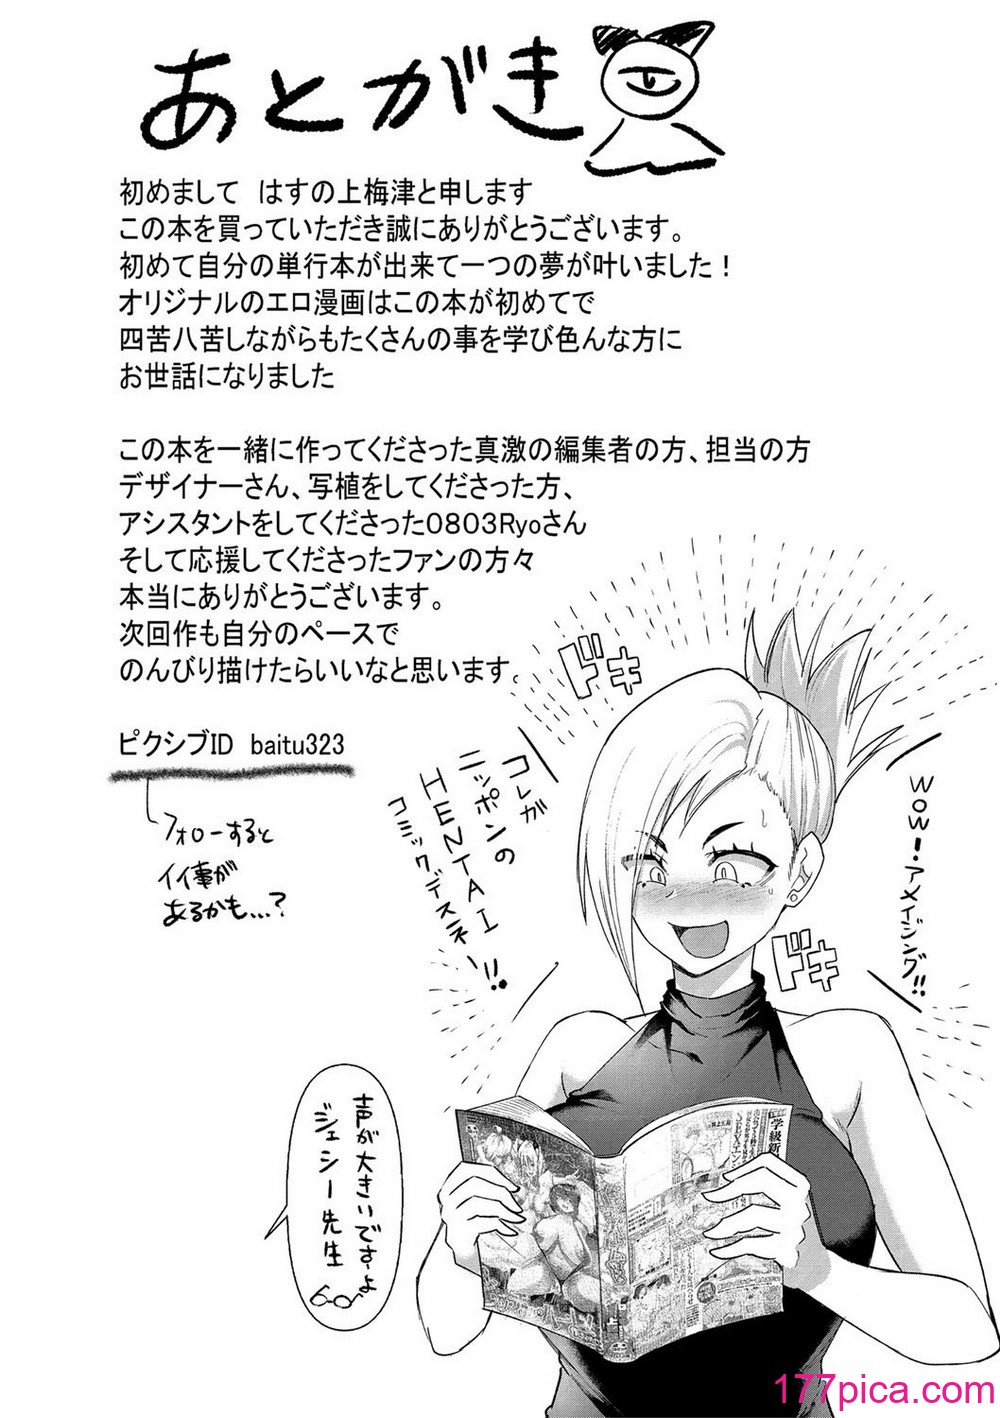 あとがき
初めまして　はすの上梅津と申します
この本を買っていただき誠にありがとうございます。
初めて自分の単行本が出来て一つの夢が叶いました！
オリジナルのエロ漫画はこの本が初めてで
四苦八苦しながらもたくさんの事を学び色んな方に
お世話になりました
この本を一緒に作ってくださった真激の編集者の方、担当の方
デザイナーさん、写植をしてくださった方、
アシスタントをしてくださった0803Ryoさん
そして応援してくださったファンの方々
本当にありがとうございます。
次回作も自分のペースで
のんびり描けたらいいなと思います。
ピクシブID　baitu323
フォローすると
イイ事が
あるかも…?
ドキ
WOW!・アメイジング!!
コレが
ニッポンの
HENTAI
コミックデスネー!!
ドキ
声が大きいですよ
ジェシー先生
学級新
177pica.com